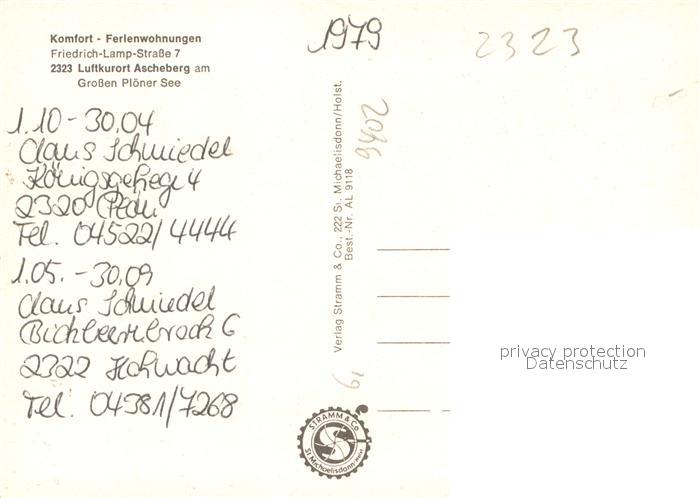 Komfort - Ferienwohnungen
Friedrich-Lamp-Straße 7
2323 Luftkurort Ascheberg am
Großen Plöner See
1979
2323
1.10 - 30.04
Claus Schmiedel
Königsgehege 4
2320 Plön
Tel. 04522/4444
1.05. - 30.09
Claus Schmiedel
6
2322 Hohwacht
Tel. 04381/7268
Verlag Stramm & Co., 222 St. Michaelisdonn/Holst.
Best.-Nr. AL 9118
9402
61
STRAMM & CO.
St. Michaelisdonn Holst.
privacy protection
Datenschutz